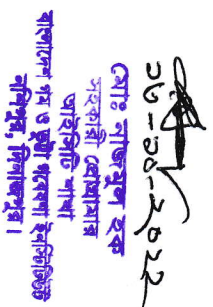 ২৩-১০-২০২২
মোঃ নাজমুল হক
সহকারী প্রোগ্রামার
আইসিটি শাখা
বাংলাদেশ গম ও ভুট্টা গবেষণা ইনস্টিটিউট
নশিপুর, দিনাজপুর।